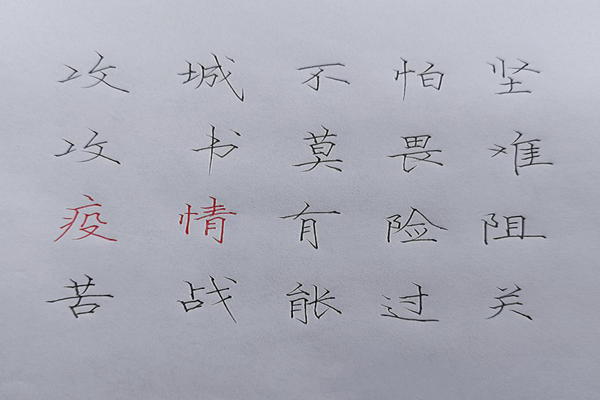 攻城不怕坚
攻书莫畏难
疫情有险阻
苦战能过关